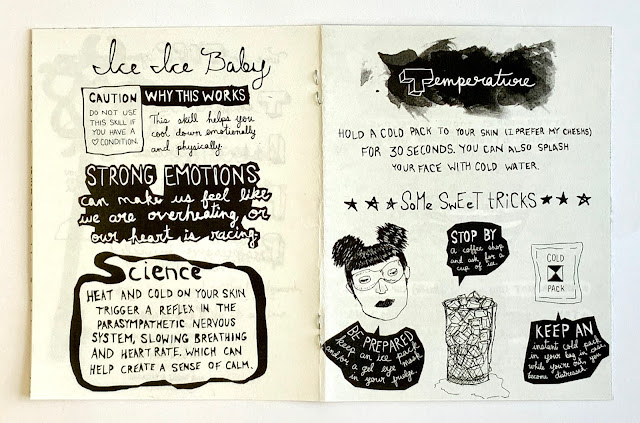 Ice Ice Baby
CAUTION
DO NOT USE
THIS SKILL IF
YOU HAVE A
♡ CONDITION.
WHY THIS WORKS
This skill helps you
cool down emotionally
and physically.
STRONG EMOTIONS
can make us feel like
we are overheating or
our heart is racing
Science
HEAT AND COLD ON YOUR SKIN
TRIGGER A REFLEX IN THE
PARASYMPATHETIC NERVOUS
SYSTEM, SLOWING BREATHING
AND HEART RATE. WHICH CAN
HELP CREATE A SENSE OF CALM.
Temperature
HOLD A COLD PACK TO YOUR SKIN (I PREFER MY CHEEKS)
FOR 30 SECONDS. YOU CAN ALSO SPLASH
YOUR FACE WITH COLD WATER.
SoMe SwEeT tRiCKS
BE PREPARED
keep an ice pack
and/or a gel eye mask
in your fridge.
STOP BY
a coffee shop
and ask for a
cup of ice.
COLD
PACK
KEEP AN
instant cold pack
in your bag in case,
while you're out, you
become distressed.